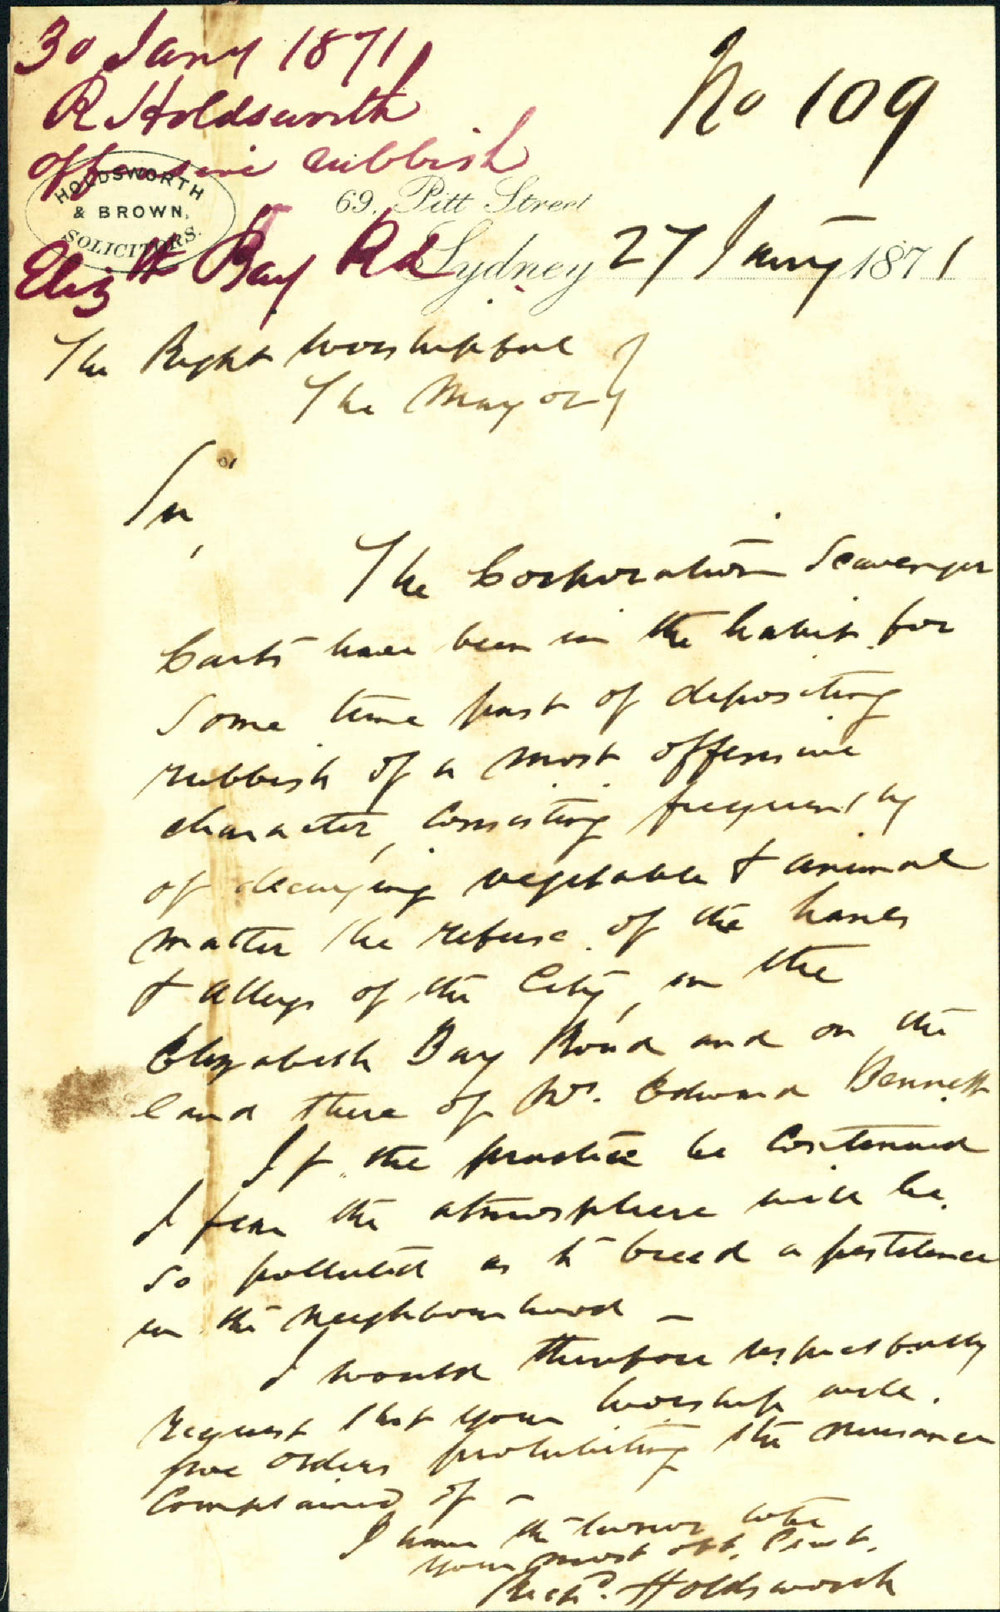 30 Jany 1871
R Holdsworth
offensive rubbish
Elizth Bay Rd
No 109
HOLDSWORTH
& BROWN,
SOLICITORS.
69, Pitt Street
Sydney 27 Jany 1871
The Right Worshipful
The Mayor
Sir,
The Corporation Scavenger
Carts have been in the habit for
some time past of depositing
rubbish of a most offensive
character, consisting frequently
of decaying vegetable & animal
matter the refuse of the lanes
& alleys of the City, in the
Elizabeth Bay Road and on the
land there of Mr. Edward Bennett
If the practice be continued
I fear the atmosphere will be
so polluted as to breed a pestilence
in the neighbourhood –
I would therefore respectfully
request that your worship will
give orders prohibiting the nuisance
complained of –
I have the honor to be
your most obt. Servt.
Richd. Holdsworth